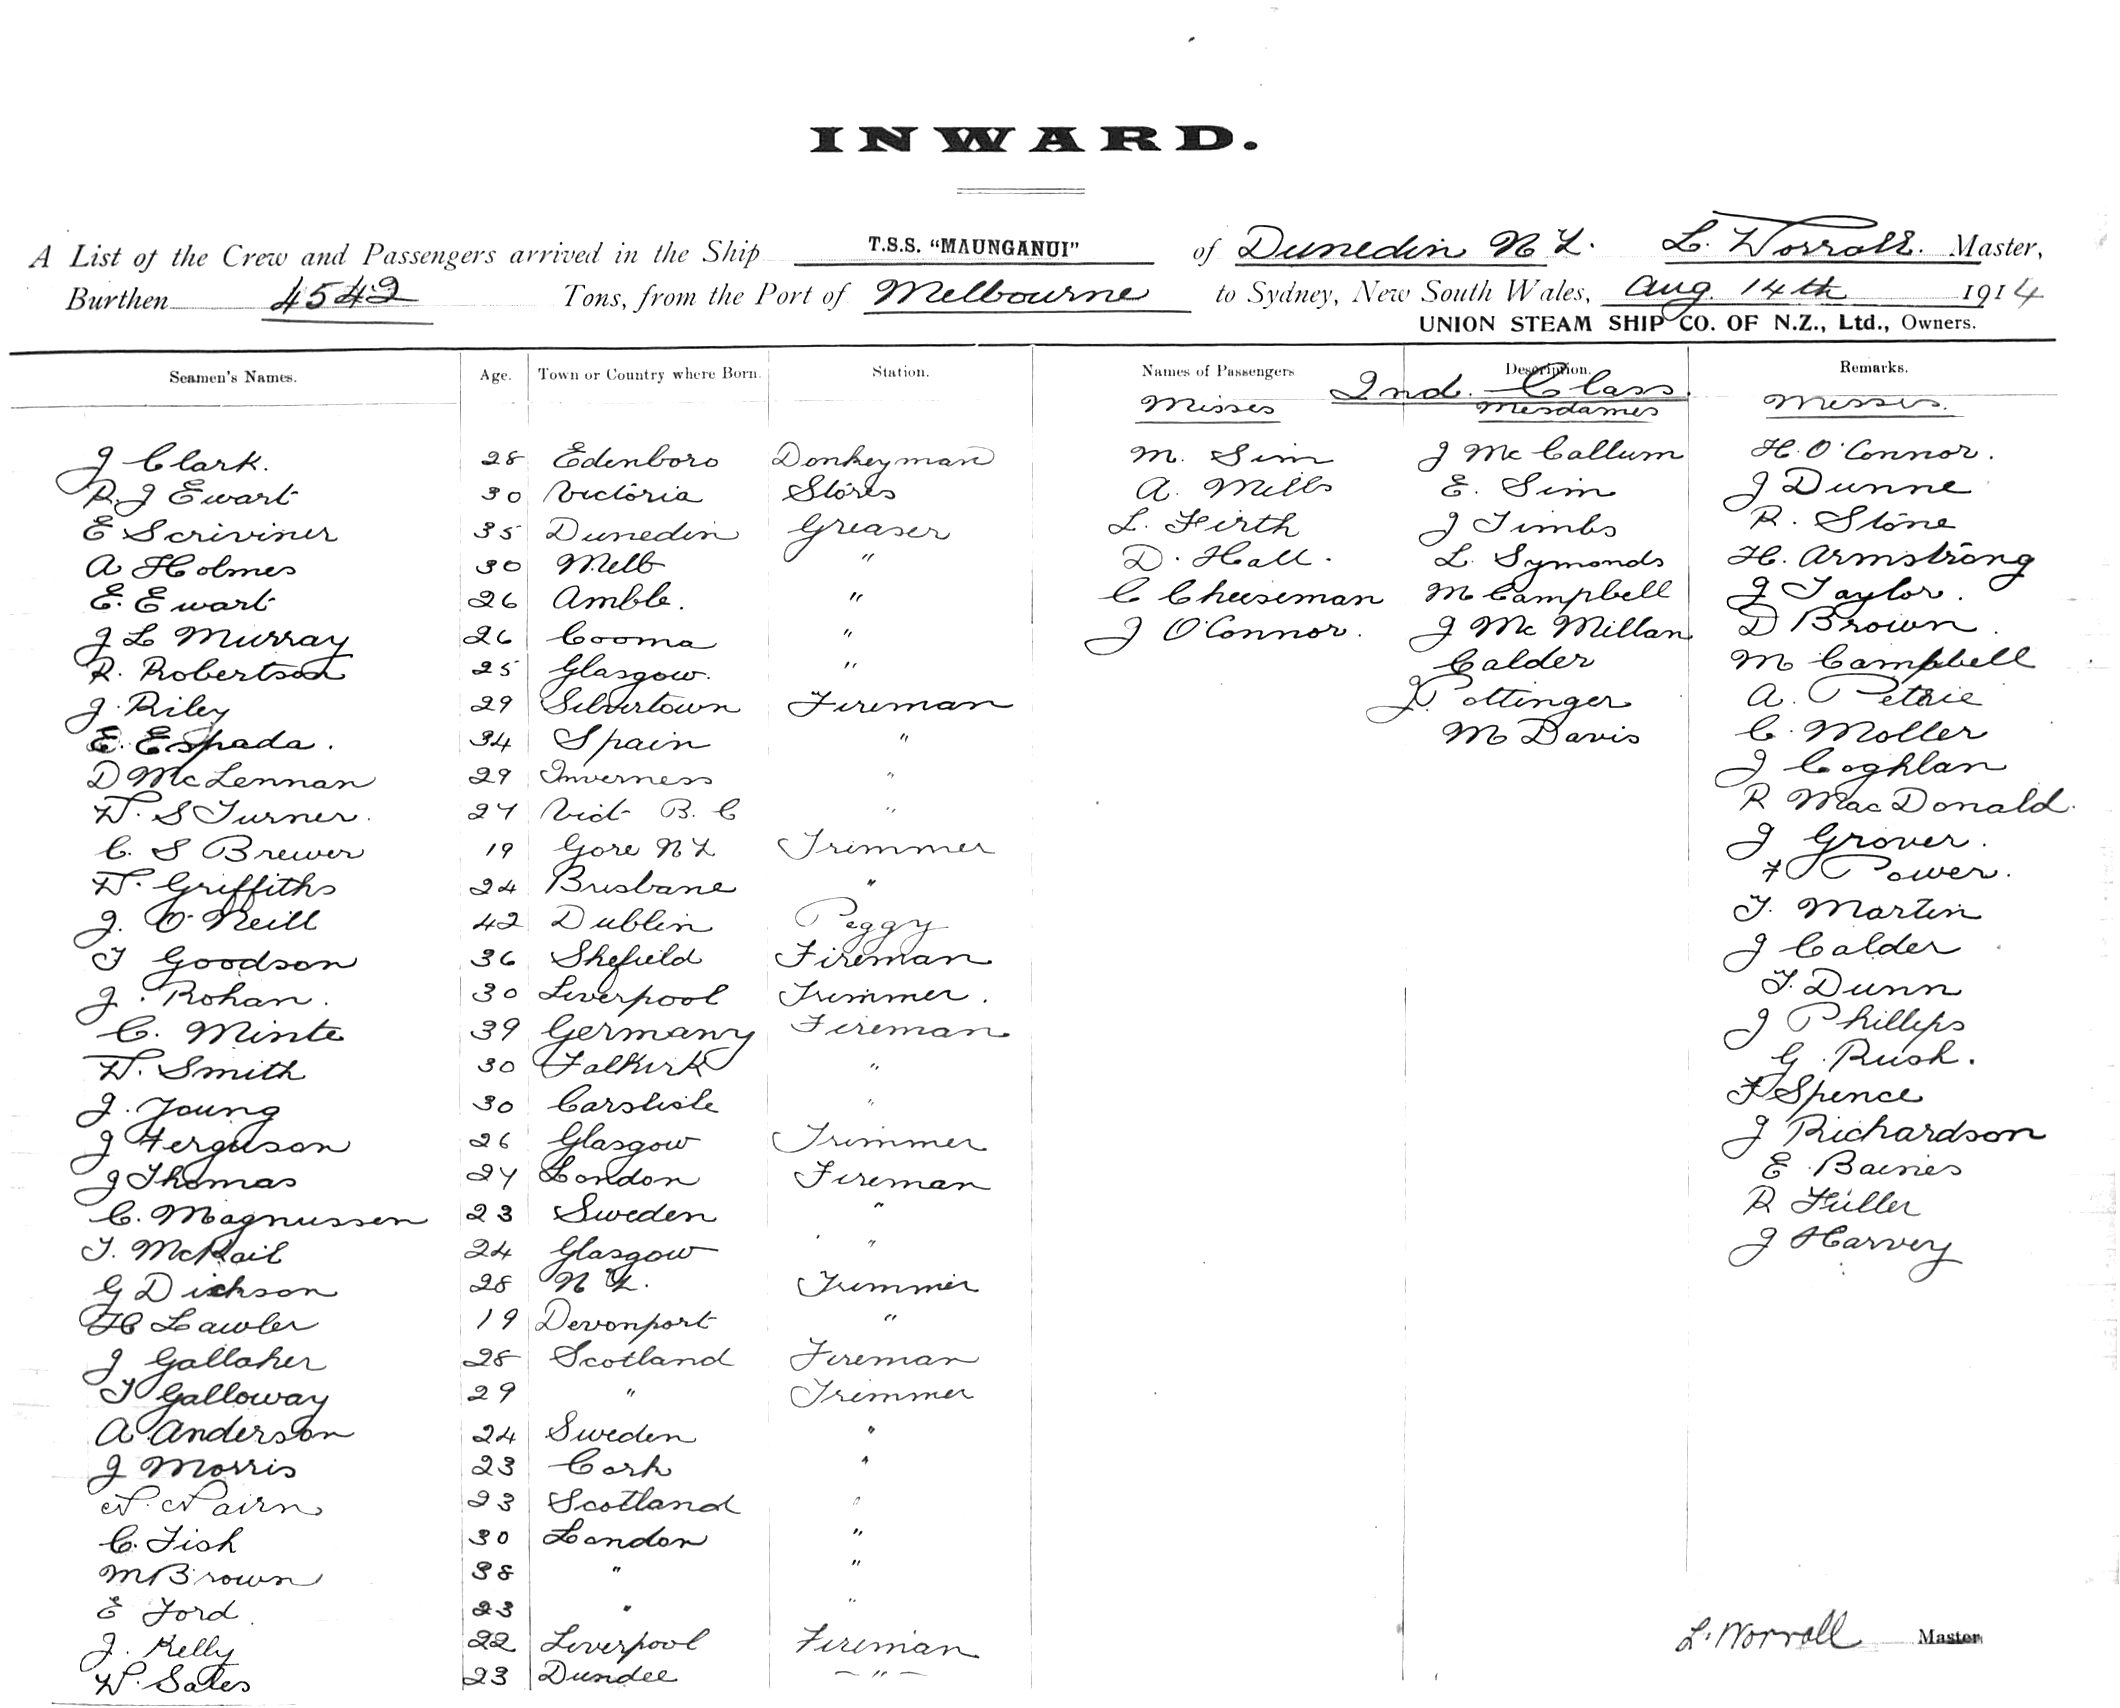 INWARD.
A List of the Crew and Passengers arrived in the Ship T.S.S. "MAUNGANUI" of Dunedin N Z. L. Worrall. Master,
Burthen 4542 Tons, from the Port of Melbourne to Sydney, New South Wales, Aug. 14th 1914
UNION STEAM SHIP CO. OF N.Z., Ltd., Owners.
Seamen's Names. Age. Town or Country where Born. Station. Names of Passengers Description. Remarks.
2nd. Class.
Misses Mesdames Messrs.
J Clark. 28 Edenboro Donkeyman M. Sim J McCallum H. O'Connor.
R. J Ewart 30 Victoria Stores A. Mills E. Sim J Dunne
E Scriviner 35 Dunedin Greaser L. Firth J Timbs R. Stone
A Holmes 30 Melb " D. Hall. L. Symonds H. Armstrong
E. Ewart 26 Amble. " C Cheeseman M Campbell J Taylor.
J L Murray 26 Cooma " J O'Connor. J McMillan D Brown.
R. Robertson 25 Glasgow. " Calder M Campbell
J. Riley 29 Silvertown Fireman J Pottinger A. Petrie
E. Espada. 34 Spain " M Davis C. Moller
D McLennan 29 Inverness " J Coghlan
W. S Turner. 27 Vict B. C " R MacDonald.
C. S Brewer 19 Gore N Z Trimmer J Grover.
W. Griffiths 24 Brisbane " F Power.
J. O'Neill 42 Dublin Peggy T. Martin
T Goodson 36 Shefield Fireman J Calder
J. Rohan. 30 Liverpool Trimmer. T. Dunn
C. Minte 39 Germany Fireman J Phillips
W. Smith 30 Falkirk " G. Rush.
J. Young 30 Carslisle " F Spence
J Ferguson 26 Glasgow Trimmer J Richardson
J Thomas 27 London Fireman E Baines
C. Magnussen 23 Sweden " R Fuller
T. McRail 24 Glasgow " J Harvey
G Dickson 28 N Z. Trimmer
H Lawler 19 Devonport "
J Gallaher 28 Scotland Fireman
T Galloway 29 " Trimmer
A Anderson 24 Sweden "
J Morris 23 Cork "
N. Nairn 23 Scotland "
C. Fish 30 London "
M Brown 38 " "
E Ford 23 " "
J. Kelly 22 Liverpool Fireman L. Worrall Master
W. Sales 23 Dundee — " —